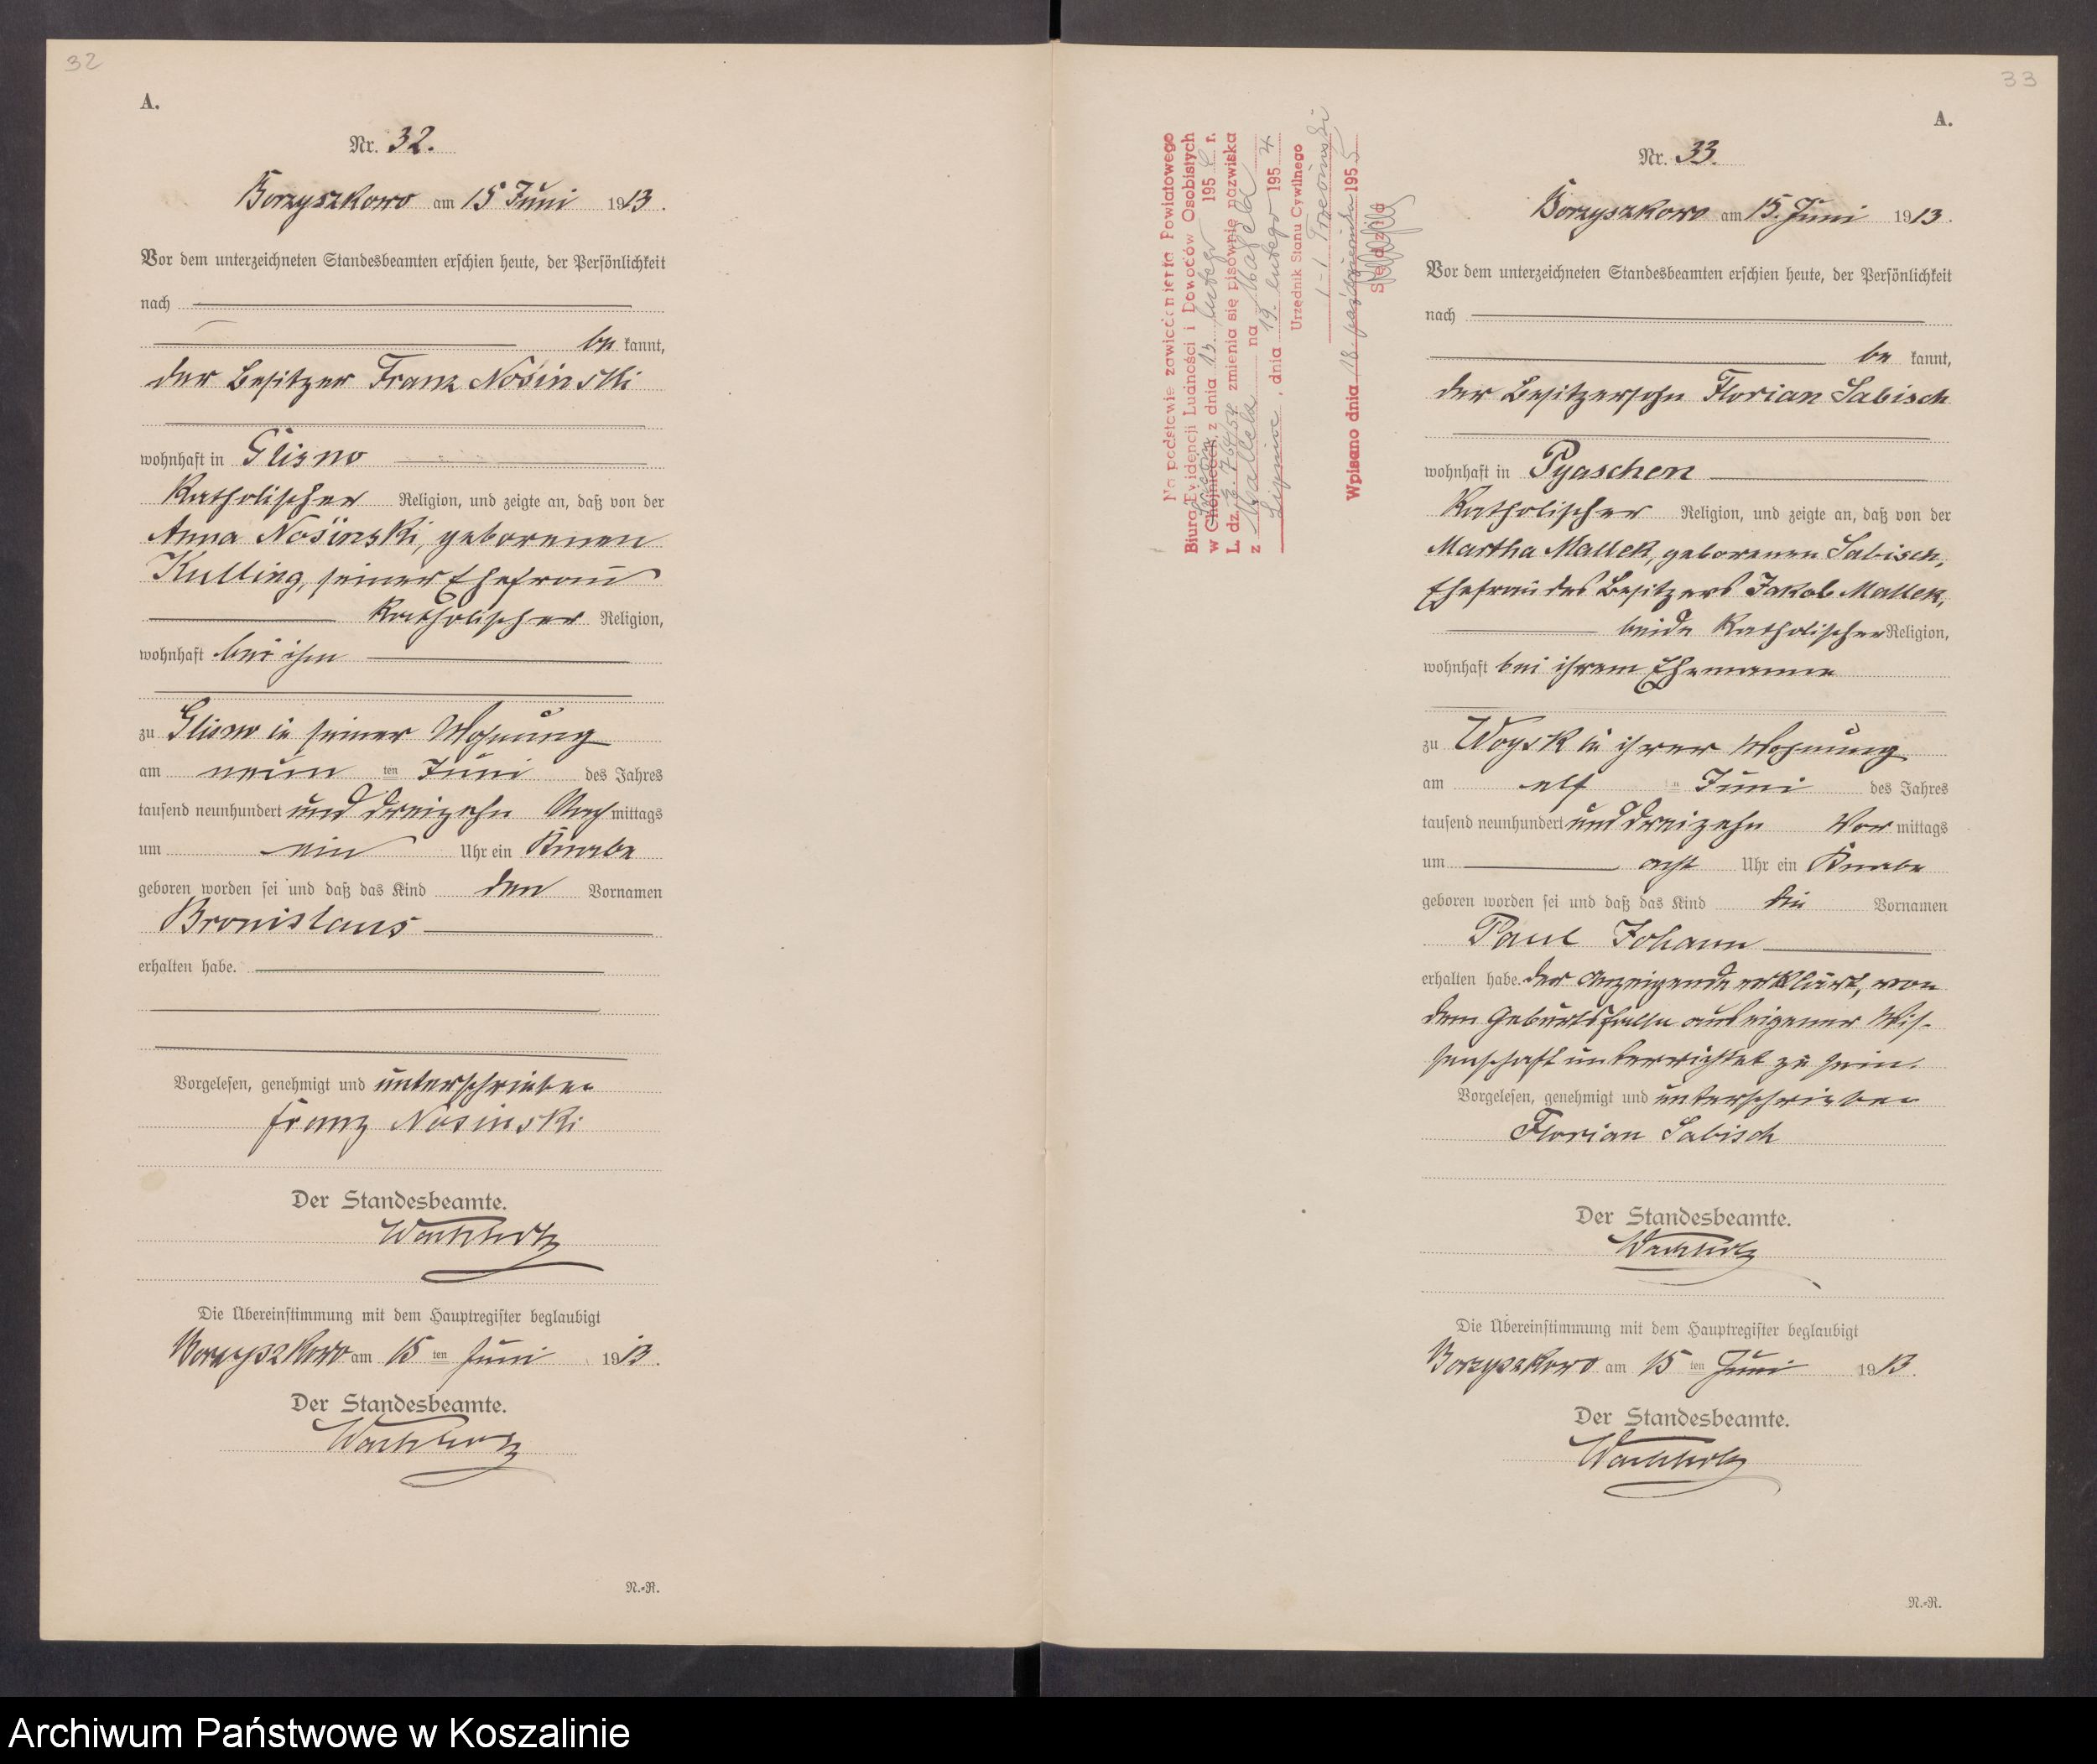 32
A.
Nr. 32.
Borzyszkowo am 15 Juni 1913.
Vor dem unterzeichneten Standesbeamten erschien heute, der Persönlichkeit
nach
be kannt,
der Besitzer Franz Nosinski
wohnhaft in Glisno
katholischer Religion, und zeigte an, daß von der
Anna Nosinski, geborenen
Kulling, seiner Ehefrau
katholischer Religion,
wohnhaft bei ihm
zu Glisno in seiner Wohnung
am neun ten Juni des Jahres
tausend neunhundert und dreizehn Nach mittags
um ein Uhr ein Knabe
geboren worden sei und daß das Kind den Vornamen
Bronislaus
erhalten habe.
Vorgelesen, genehmigt und unterschrieben
Franz Nosinski
Der Standesbeamte.
Die Übereinstimmung mit dem Hauptregister beglaubigt
Borzyszkowo am 15 ten Juni 1913.
Der Standesbeamte.
N.-R.
33
A.
Nr. 33.
Borzyszkowo am 15. Juni 1913.
Vor dem unterzeichneten Standesbeamten erschien heute, der Persönlichkeit
nach
be kannt,
der Besitzersohn Florian Sabisch
wohnhaft in Pyaschen
katholischer Religion, und zeigte an, daß von der
Martha Mallek, geborenen Sabisch,
Ehefrau des Besitzers Jakob Mallek,
beide katholischer Religion,
wohnhaft bei ihrem Ehemanne
zu Woysk in ihrer Wohnung
am elf ten Juni des Jahres
tausend neunhundert und dreizehn Vor mittags
um acht Uhr ein Knabe
geboren worden sei und daß das Kind die Vornamen
Paul Johann
erhalten habe. Der Anzeigende erklärt, von
dem Geburtsfalle aus eigener Wis-
senschaft unterrichtet zu sein.
Vorgelesen, genehmigt und unterschrieben
Florian Sabisch
Der Standesbeamte.
Die Übereinstimmung mit dem Hauptregister beglaubigt
Borzyszkowo am 15 ten Juni 1913.
Der Standesbeamte.
N.-R.
Na podstawie zawiadomienia Powiatowego
Biura Ewidencji Ludności i Dowodów Osobistych
w Chojnicach z dnia 13 lutego 195 r.
L. dz. zmienia się pisownię nazwiska
z Malleka na
Lipnica, dnia 19. lutego 1954
Urzędnik Stanu Cywilnego
Wpisano dnia 18. października 1955
Archiwum Państwowe w Koszalinie